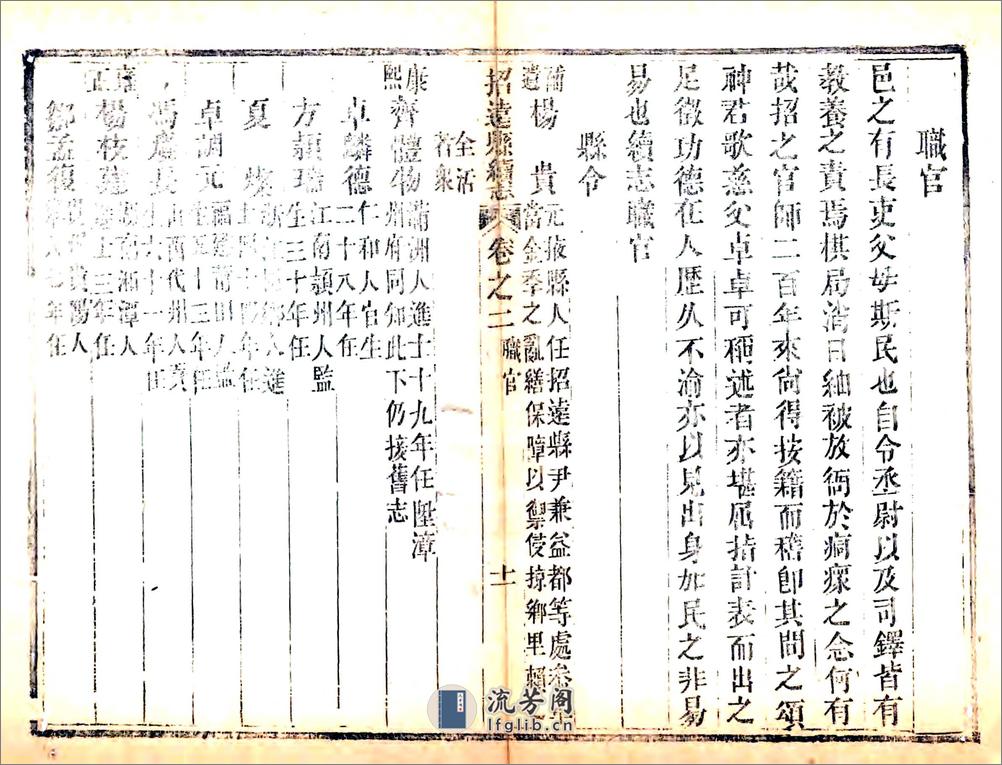 職官
邑之有長吏父母斯民也自令丞尉以及司鐸皆有
教養之責焉棋局消日紬被放衙於痌瘝之念何有
哉招之官師二百年來尚得按籍而稽卽其間之頌
神君歌慈父卓卓可稱述者亦堪屈指計表而出之
足徵功德在人歷久不渝亦以見出身加民之非易
易也續志職官
縣令
蒲
遺
楊 貴
元掖縣人任招遠縣尹兼益都等處
當金季之亂繕保障以禦侵掠鄉里賴
招遠縣續志 卷之二 職官 十一
全活
若衆
康
熙
齊體物
滿洲人進士十九年任陞漳
州府同知此下仍接舊志
卓麟德
仁和人官生
二十八年任
方顯瑞
江南潁州人監
生三十年任
夏
進
年任
卓胡元
福建莆田人監
生五十三年任
馮
山西代州人貢
生六十一年任
雍
正
楊枝建
湖南湘潭人
三年任
鄒孟復
陽人
年任
流芳阁
lfglib.cn